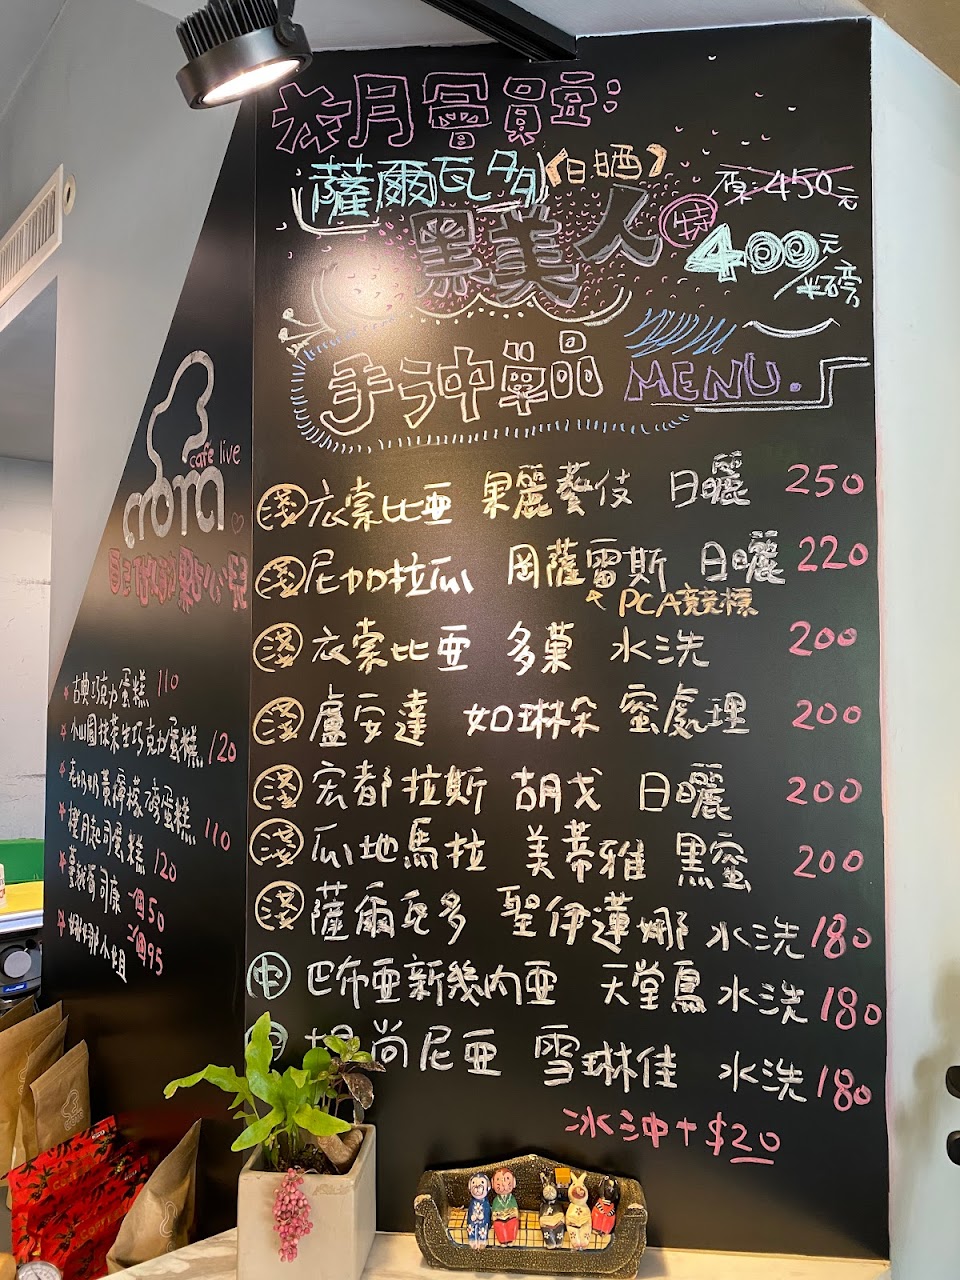 本月會員豆:
薩爾瓦多《日晒》
黑美人
原:450元
特 400元/半磅
手沖單品 MENU.
淺 衣索比亞 果麗藝伎 日曬 250
淺 尼加拉瓜 岡薩雷斯 日曬 220
PCA競標
淺 衣索比亞 多菓 水洗 200
淺 盧安達 如琳朵 蜜處理 200
淺 宏都拉斯 胡戈 日曬 200
淺 瓜地馬拉 美蒂雅 黑蜜 200
淺 薩爾瓦多 聖伊蓮娜 水洗 180
中 巴布亞新幾內亞 天堂鳥 水洗 180
坦尚尼亞 雪琳佳 水洗 180
冰沖+$20
cafe live
古典巧克力蛋糕 110
小山圓抹茶生巧克力蛋糕 120
老奶奶黃檸檬磅蛋糕 110
橙月起司蛋糕 120
蔓越莓司康 一個50
二個95
娜娜小姐